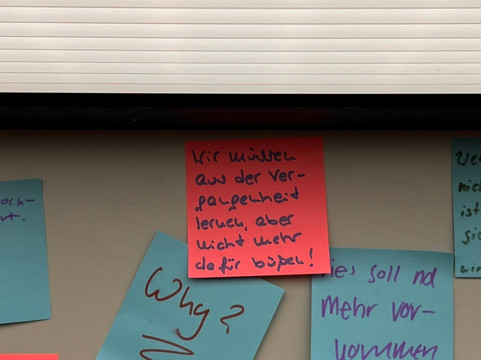 Wir müssen
aus der Ver-
gangenheit
lernen, aber
nicht mehr
dafür büßen!
Why?
soll
Mehr vor-
kommen
ist